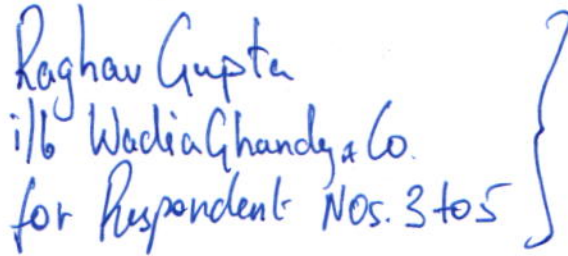 Raghav Gupta
i/b Wadia Ghandy & Co.
for Respondent Nos. 3 to 5